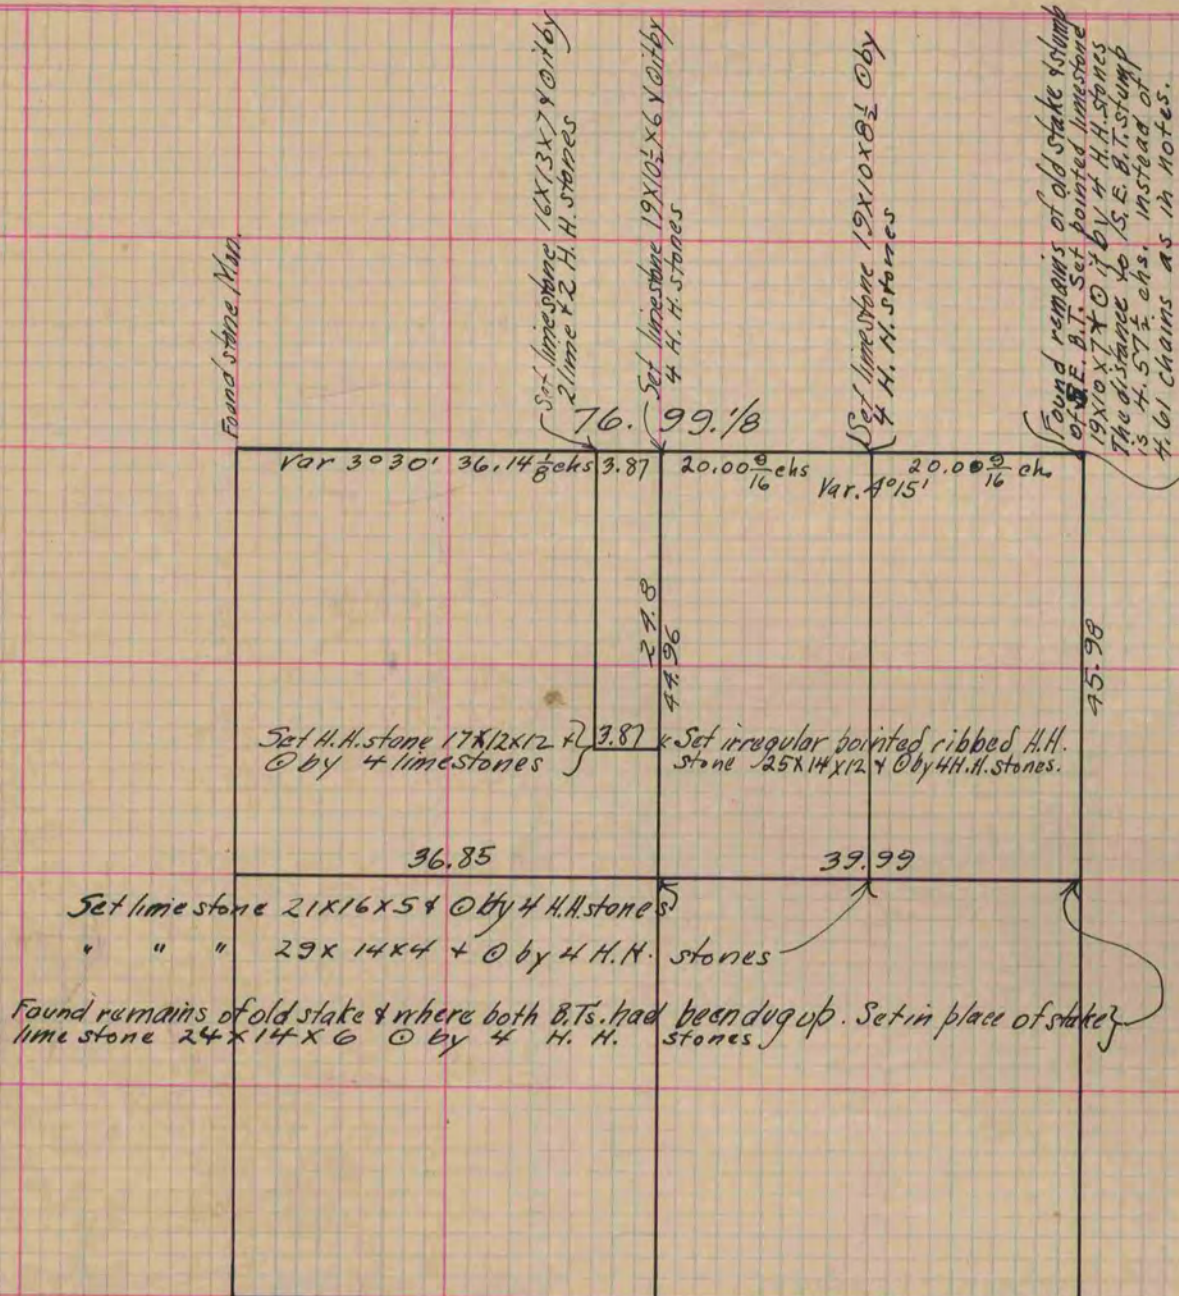 Found stone Mon.
Set limestone 16X13X7 & ⊙ it by
2 lime & 2 H. H. stones
Set limestone 19X10½X6 & ⊙ it by
4 H. H. stones
Set limestone 19X10X8½ ⊙ by
4 H. H. stones
Found remains of old stake & stump
of S.E. B.T. Set pointed limestone
19X10X7 & ⊙ it by 4 H.H. stones
The distance to S.E. B.T. stump
is 4.57½ chs. instead of
4.61 chains as in notes.
76. 99.1/8
Var 3° 30' 36.14 1/8 chs 3.87 20.00 9/16 chs 20.00 9/16 ch.
Var. 4° 15'
24.8
44.96
45.98
Set H.H. stone 17X12X12 & 
⊙ by 4 limestones
3.87
Set irregular pointed ribbed H.H.
stone 25X14X12 & ⊙ by 4 H.H. stones.
36.85 39.99
Set lime stone 21X16X5 & ⊙ by 4 H.H stones
" " " 29X 14X4 + ⊙ by 4 H.H. stones
Found remains of old stake & where both B.Ts. had been dug up. Set in place of stake
lime stone 24 X 14 X 6 ⊙ by 4 H. H. stones.